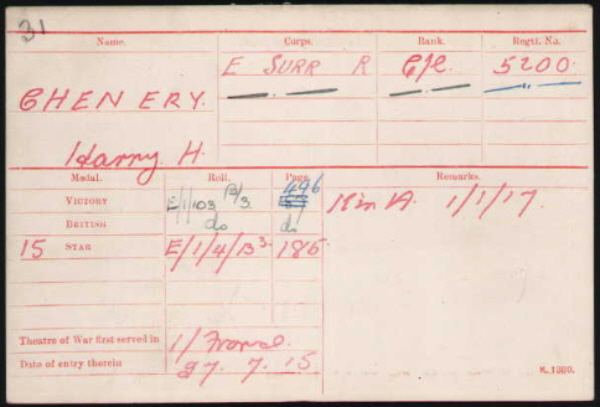 31
Name. Corps. Rank. Regtl. No.
E SURR R Cpl. 5200.
CHENERY.
Harry. H.
Medal. Roll. Page. Remarks.
VICTORY E/1/103 B/3. 496 K in A. 1/1/17.
BRITISH do do
15 STAR E/1/4/B3 185
Theatre of War first served in 1/ France.
Date of entry therein 27. 7. 15
K. 1380.